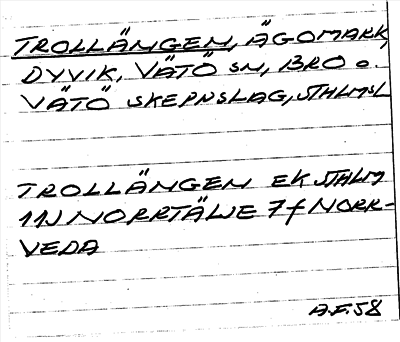 TROLLÄNGEN, ÄGOMARK,
DYVIK, VÄTÖ SN, BRO O.
VÄTÖ SKEPPSLAG, STHLMSL
TROLLÄNGEN EK STHLM
11J NORRTÄLJE 7f NORR-
VEDA
A.F. 58